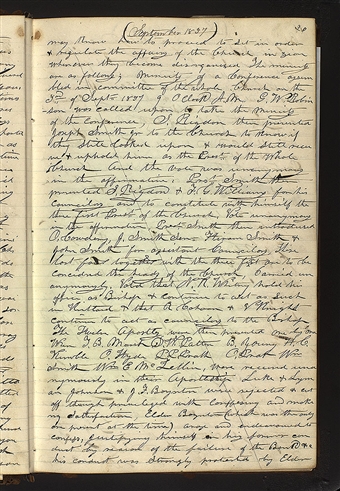 (September 1837)
may know how to proceed to set in order
& regulate the affairs of the Church in Zion
whenever they become disorganized The minutes
are as follows; Minutes of a Conference assem
bled in committee of the whole Church on the
3rd of Sept. 1837 9 O'clock A.M. G. W. Robin
son was called upon to take the minutes
of the conference. S. Rigdon then presented
Joseph Smith jr to the Church to know if
they still looked upon & would still recei
ve & uphold him as the Prest. of the Whole
Church And the vote was unanymous
in the affirmative: Prest Smith then
presented S. Rigdon & F. G. Williams for his
councilors and to constitute with himself the
three first Prest of the Church. Vote unanymous
in the affirmative Prest Smith then introduced
O. Cowdery, J. Smith Sen. Hiram Smith &
John Smith for assistant Councilors. These
last four together with the three first are to be
concidered the heads of the Church, Carried un
anymously. Voted that N. K. Whitney hold his
office as Bishop & continue to act as such
in Kirtland & that R. Cahoon & V. Knight
continue to act as councilors to the Bishop
The Twelve Apostles were then presented one by one
When T. B. Marsh D. W. Patten B. Young H. C.
Kimble O. Hyde P. P. Pratt O. Pratt Wm
Smith Wm E. McLellin, were received una
nymously in their Apostleship Luke Johnson
Lyman Johnson & J. F. Boynton were rejected & cut
off though privileged with confessing and makin
g satisfaction, Elder Boynton (which was the only
one present at the time) arose and endeavoured to
confess, justifying himself in his former con
duct by reason of the failure of the Bank &c
his conduct was strongly protested by Elder